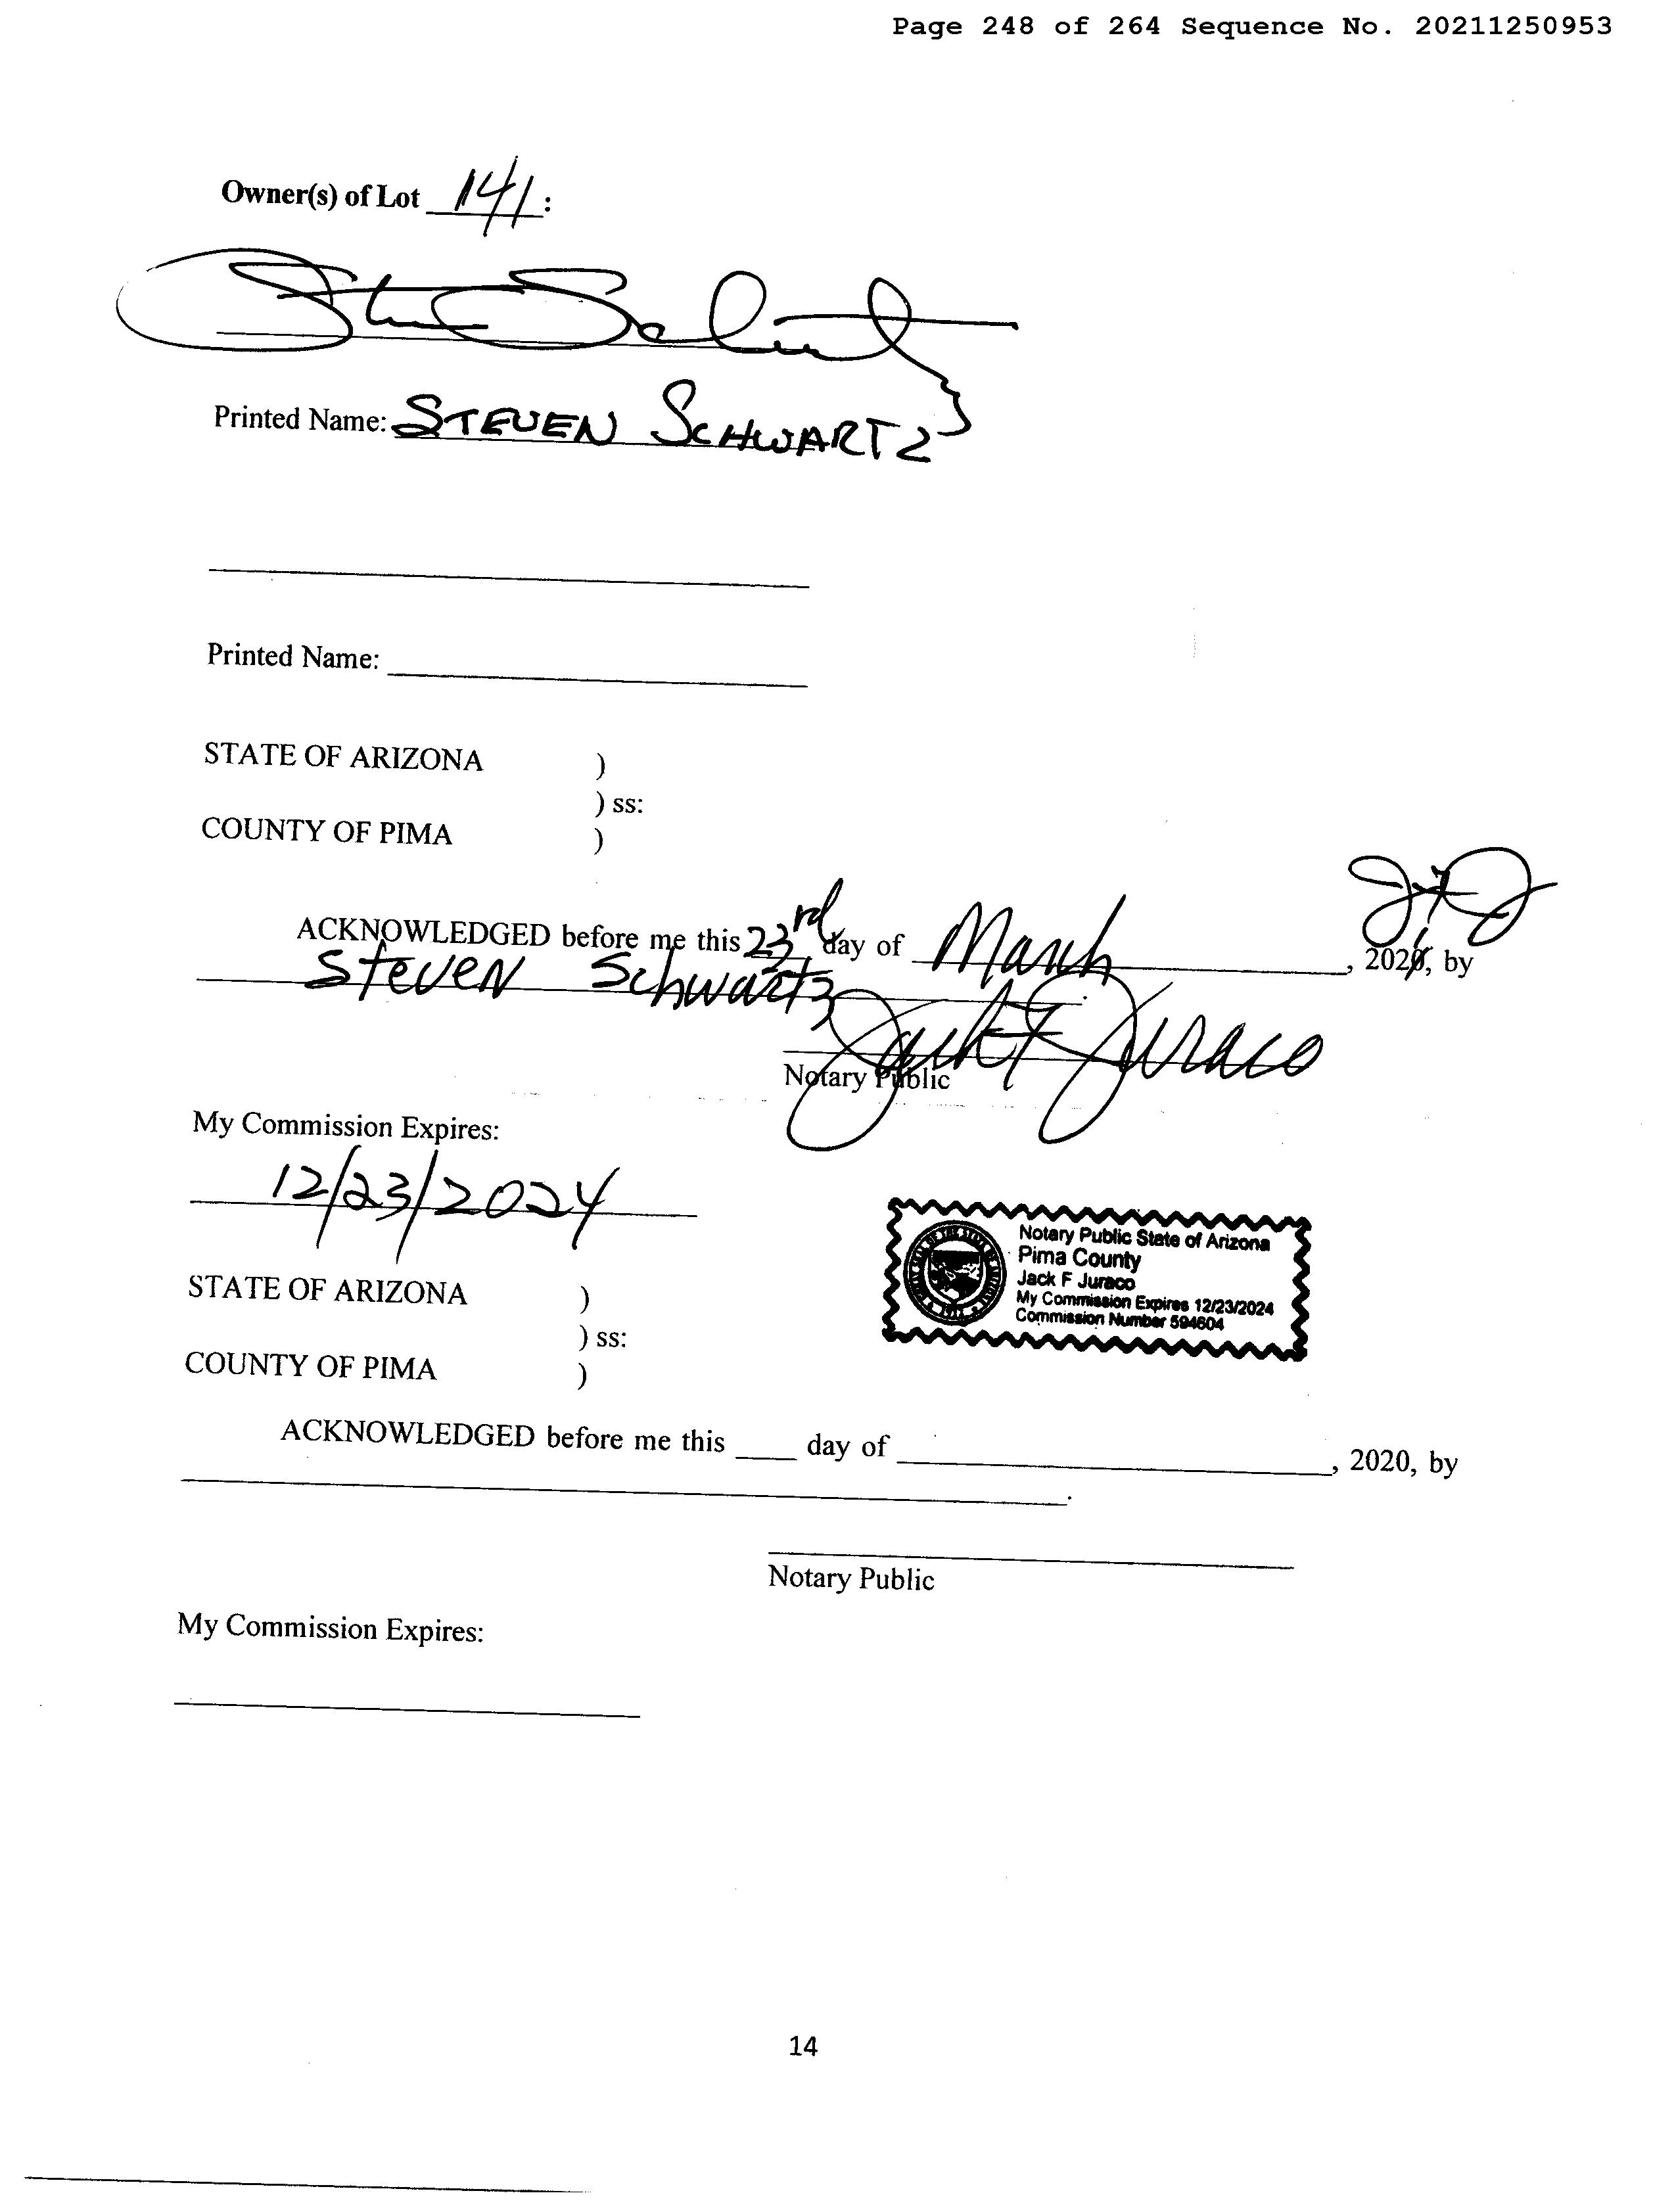 Page 248 of 264 Sequence No. 20211250953
Owner(s) of Lot 141:
Printed Name: STEVEN SCHWARTZ
Printed Name:
STATE OF ARIZONA )
) ss:
COUNTY OF PIMA )
ACKNOWLEDGED before me this 23rd day of March, 2021, by
Steven Schwartz
Jack F Juraco
Notary Public
My Commission Expires:
12/23/2024
Notary Public State of Arizona
Pima County
Jack F Juraco
My Commission Expires 12/23/2024
Commission Number 594604
STATE OF ARIZONA )
) ss:
COUNTY OF PIMA )
ACKNOWLEDGED before me this ____ day of ____, 2020, by
Notary Public
My Commission Expires:
14